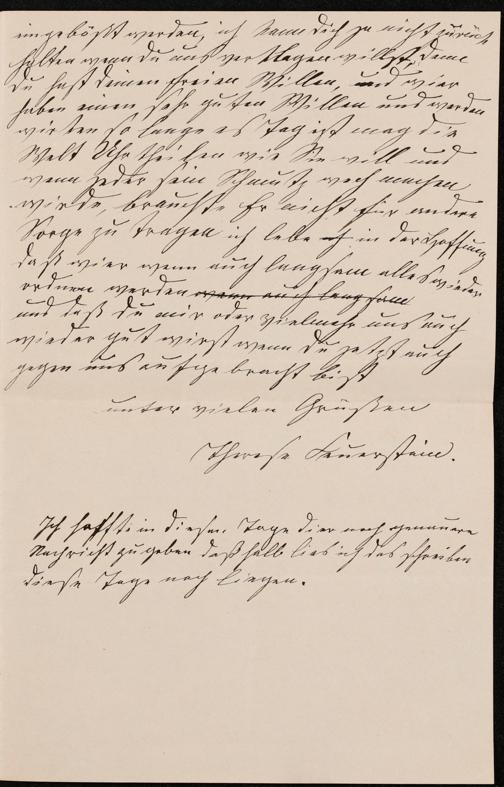 eingebüßt werden, ich kann dich ja nicht zurück
halten wenn du uns verklagen willst, denn
du hast deinen freien Willen, und wier
haben einen sehr guten Willen und werden
wirken so lange es Tag ist mag die
Welt Uhrtheilen wie Sie will und
wenn jeder sein Schmutz wech machen
wirde, brauchte Er nicht für andere
Sorge zu tragen ich lebe in der Hoffnung
daß wier wenn auch langsam alles wieder
ordnen werden wenn auch langsam
und daß du mir oder vielmehr uns auch
wieder gut wirst wenn du jetzt auch
gegen uns aufgebracht bist
unter vielen Grüßen
Therese Feuerstein.
Ich hoffte in diesen Tage dier noch genauere
Nachricht zu geben deßhalb lies ich das schreiben
diese Tage noch liegen.